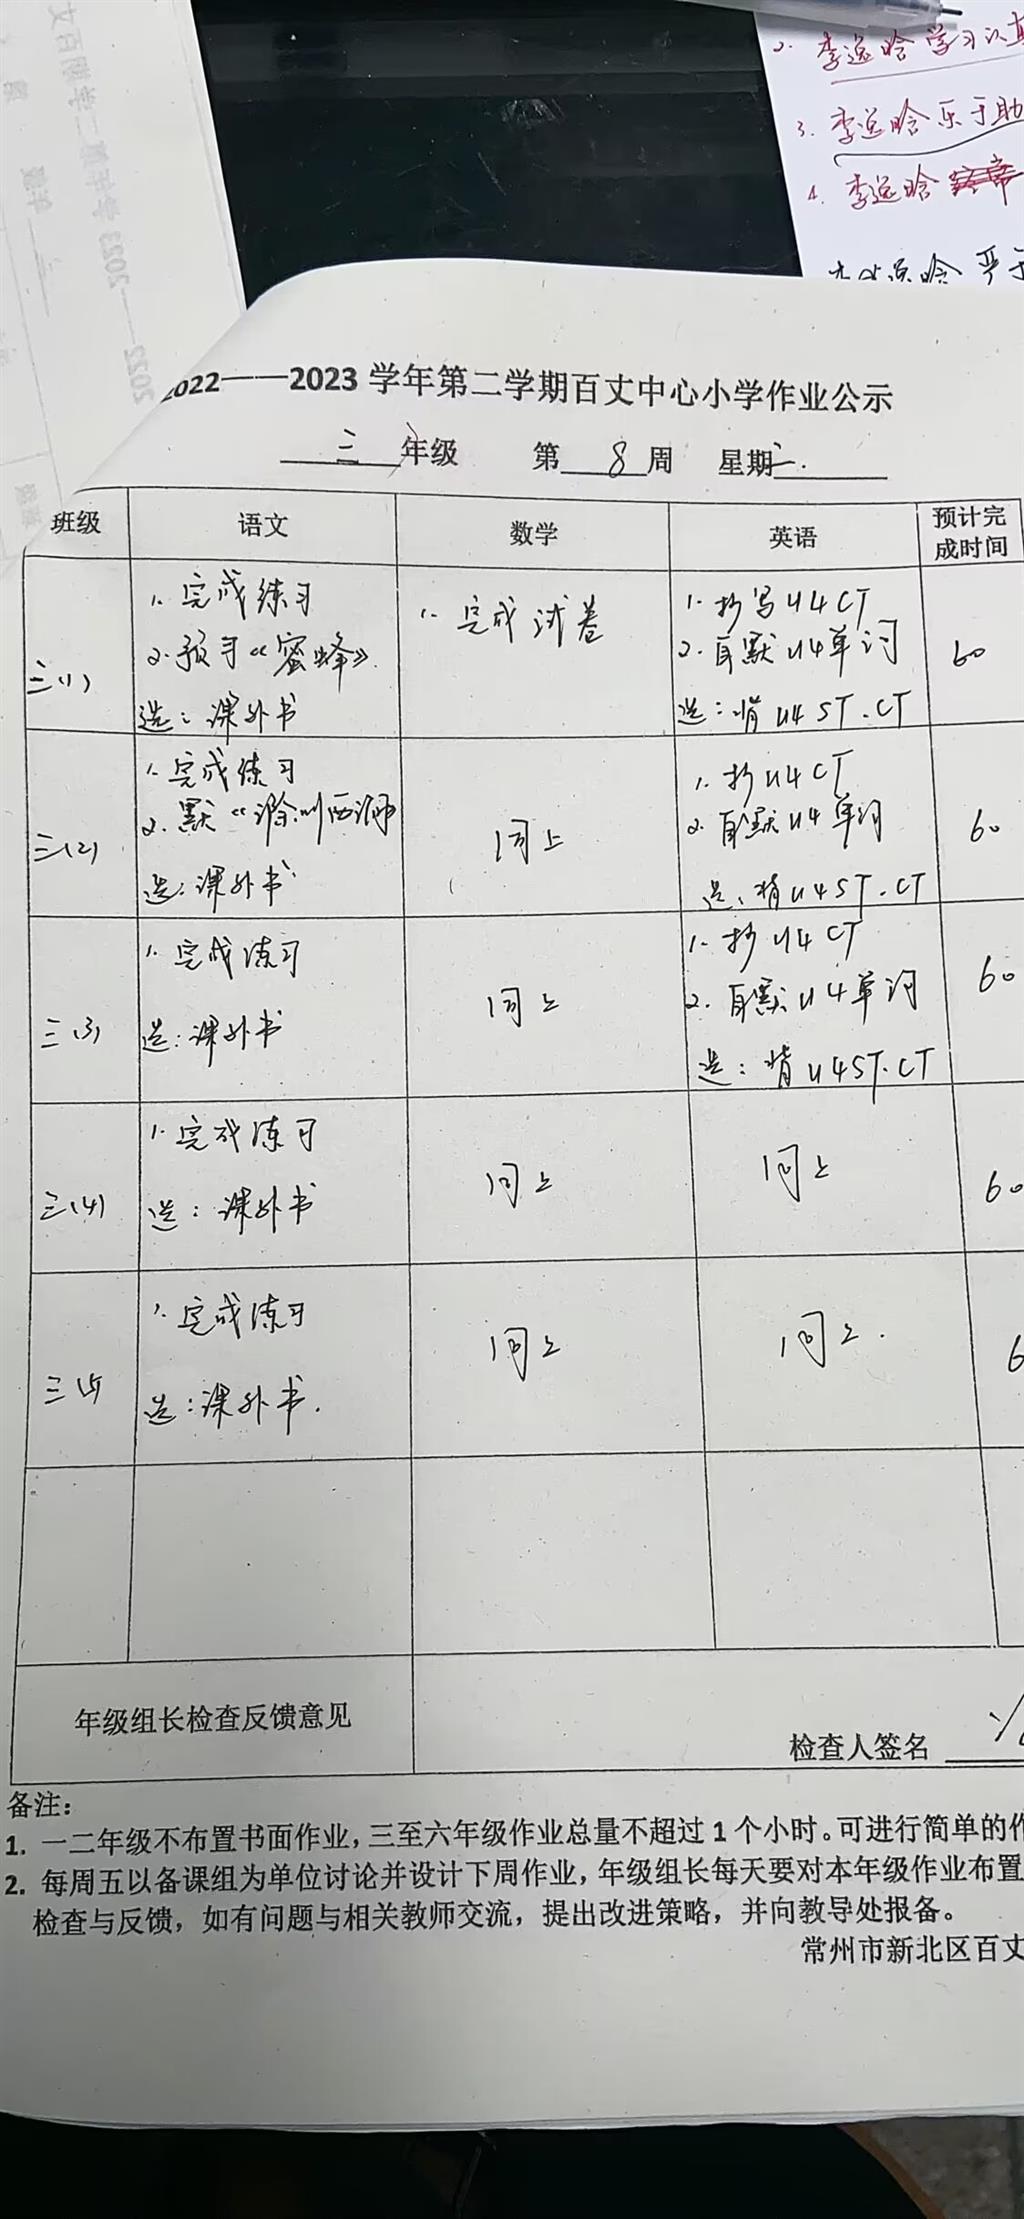 2. 李逸晗学习认真
3. 李逸晗乐于助
4. 李逸晗
2022——2023学年第二学期百丈中心小学作业公示
三 年级 第 8 周 星期二.
班级 语文 数学 英语 预计完成时间
三(1)
1. 完成练习
2. 预习《蜜蜂》.
选:课外书
1. 完成试卷
1. 抄写U4 CT
2. 自默U4单词
选:背U4 ST.CT
60
三(2)
1. 完成练习
2. 默《滁州西涧
选:课外书
同上
1. 抄U4 CT
2. 自默U4单词
选:背U4 ST.CT
60
三(3)
1. 完成练习
选:课外书
同上
1. 抄U4 CT
2. 自默U4单词
选:背U4 ST.CT
60
三(4)
1. 完成练习
选:课外书
同上
同上
60
三(5)
1. 完成练习
选:课外书.
同上
同上.
6
年级组长检查反馈意见
检查人签名
备注:
1. 一二年级不布置书面作业,三至六年级作业总量不超过1个小时。可进行简单的作
2. 每周五以备课组为单位讨论并设计下周作业,年级组长每天要对本年级作业布置
检查与反馈,如有问题与相关教师交流,提出改进策略,并向教导处报备。
常州市新北区百丈